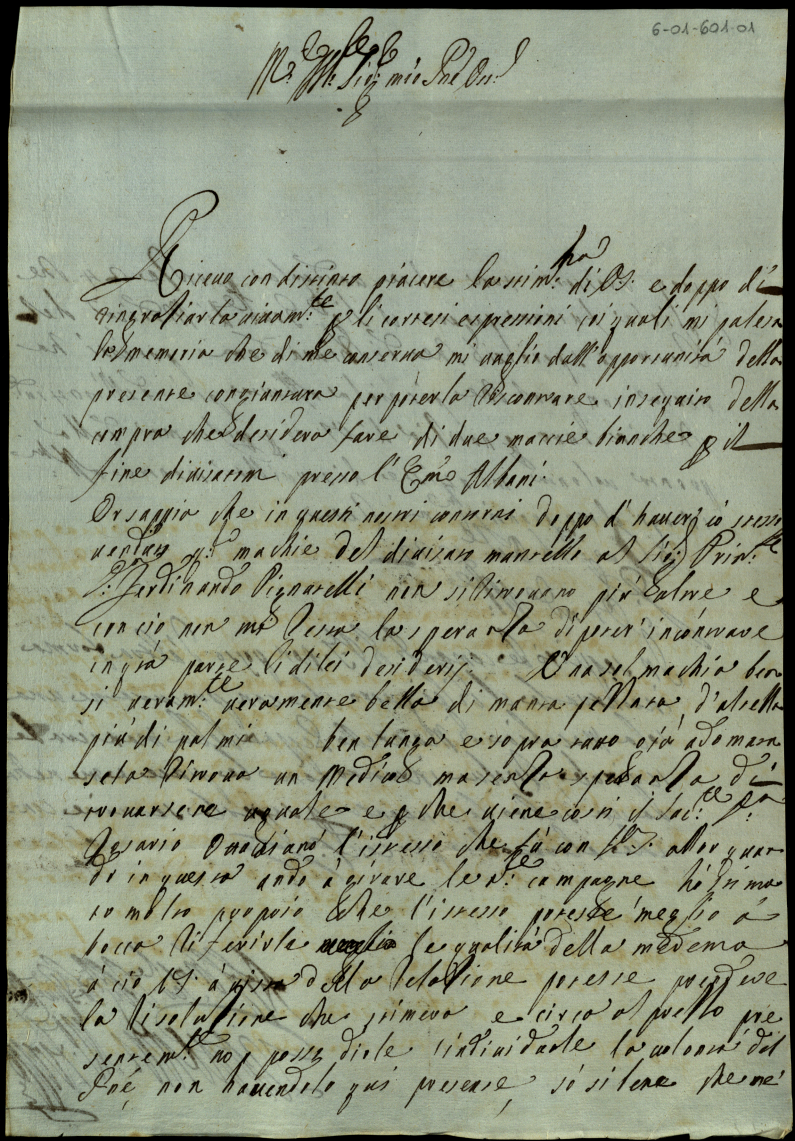 6-01-601-01
Ill. Sig. mio Pne
Ricevo con distinto piacere la stim.ma di VS. e doppo di
ringratiarla vivam.te p li cortesi espressioni coi quali mi palesa
la memoria che di me conserva mi vaglio dall'opportunità della
presente congiuntura per poterla riscontrare in seguito della
compra che desidera fare di due machie bianche p il
fine divisatomi presso l'Em.o Albani.
Or sappia che in questi nostri contorni doppo d'haver io stesso
venduto machie del divisato mantello al Sig. Prin.
D. Ferdinando Pignatelli non si ritrovano più altre e
con ciò non mi resta la speranza di poter incontrare
in grà parte li di lei desiderij. Una sol machia ben
si veram.te veramente bella di manto pezzata d'altezza
più di palmi ben lunga e sopra tutto già adoma
sola ritrova un Medico ma senza speranza di
trovarsene uguale e p che viene costì il
Rosario l'istesso che fù con VS. allor quan
do in questa andò à girare le campagne hò stima
to molto proprio che l'istesso potesse meglio à
bocca riferirle le qualità della medema
à ciò VS. à vista della relatione potesse prendere
la risolutione che stimerà e circa al prezzo pre
sentem.te no posso dirle individuarle la volontà del
Pnē non havendolo quì presente, so si bene che ne